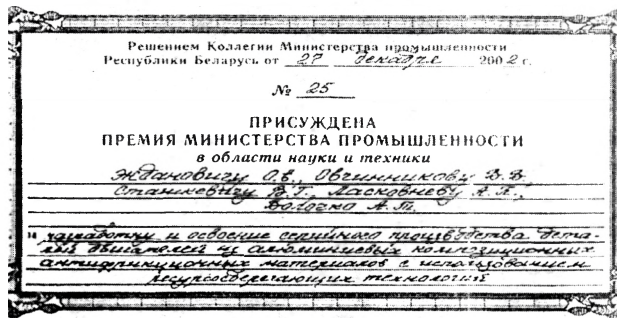 Решением Коллегии Министерства промышленности
Республики Беларусь от 27 декабря 2002 г.
№ 25
ПРИСУЖДЕНА
ПРЕМИЯ МИНИСТЕРСТВА ПРОМЫШЛЕННОСТИ
в области науки и техники
Ждановичу О.В., Овчинникову В.В.,
Сташкевичу В.Г. Ласковневу А.П.,
Волочко А.Т.
за разработку и освоение серийного производства дета-
лей двигателей из алюминиевых композиционных
антифрикционных материалов с использованием
ресурсосберегающих технологий